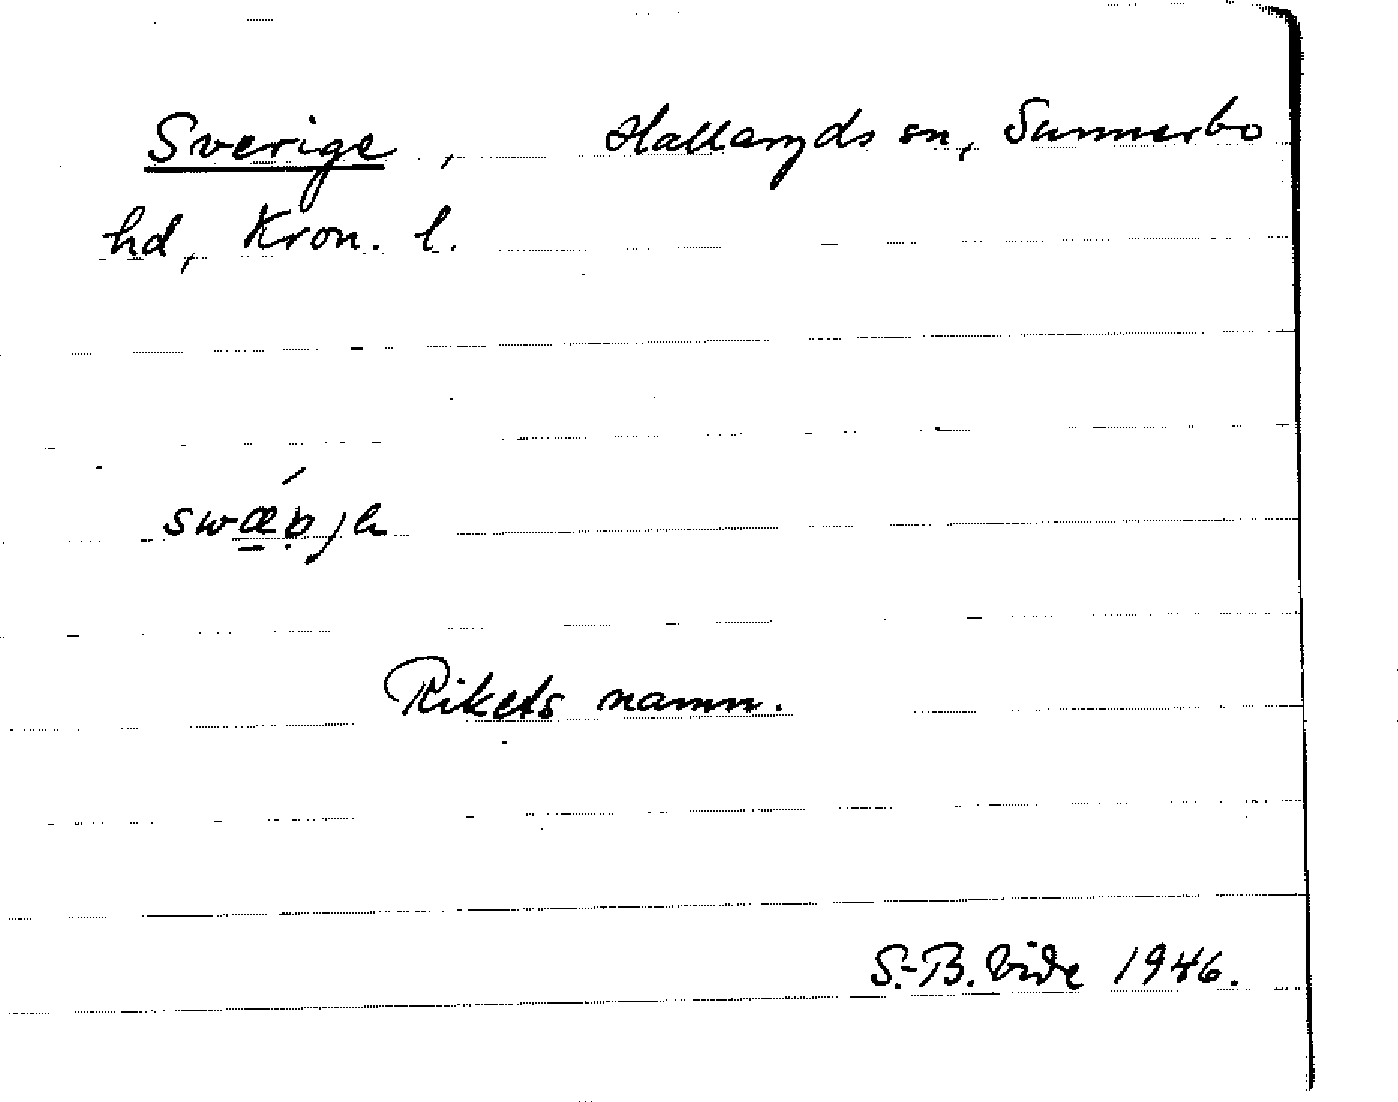 Sverige, Hallaryds sn, Sunnerbo
hd, Kron. l.
Rikets namn.
S.-B. Vide 1946.